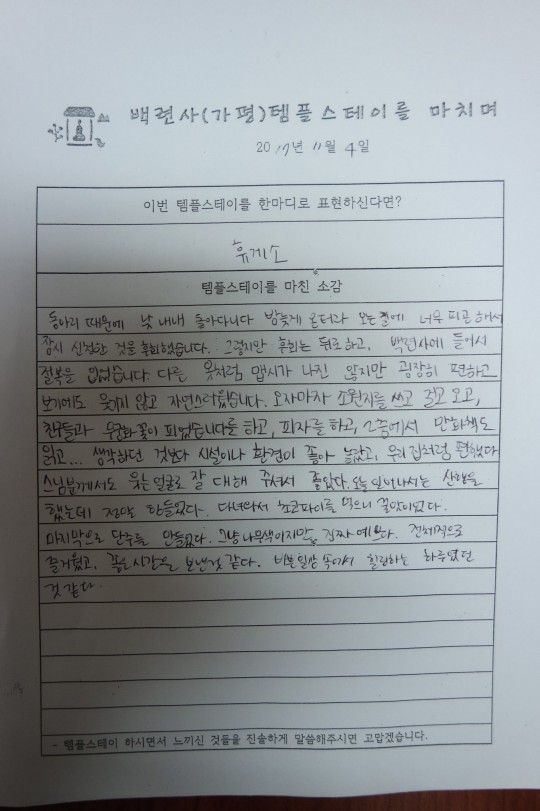 백련사(가평)템플스테이를 마치며
2017년 11월 4일
이번 템플스테이를 한마디로 표현하신다면?
휴게소
템플스테이를 마친 소감
동아리 때문에 낮 내내 돌아다니다 밤늦게 온터라 오는 길에 너무 피곤해서
잠시 신청한 것을 후회했습니다. 그렇지만 후회는 뒤로하고, 백련사에 들어서
절복을 입었습니다. 다른 옷처럼 맵시가 나진 않지만 굉장히 편하고
보기에도 웃기지 않고 자연스러웠습니다. 오자마자 소원지를 쓰고 걸고 오고,
친구들과 무궁화꽃이 피었습니다를 하고, 피자를 하고, 2층에서 만화책도
읽고... 생각하던 것보다 시설이나 환경이 좋아 놀랐고, 우리집처럼 편했다
스님분께서도 웃는 얼굴로 잘 대해 주셔서 좋았다. 오늘 일어나서는 산행을
했는데 정말 힘들었다. 다녀와서 초코파이를 먹으니 꿀맛이었다.
마지막으로 단주를 만들었다. 그냥 나무색이지만 진짜 예쁘다. 전체적으로
즐거웠고, 좋은 시간을 보낸것 같다. 바쁜일상 속에서 힐링하는 하루였던
것 같다.
- 템플스테이 하시면서 느끼신 것들을 진솔하게 말씀해주시면 고맙겠습니다.